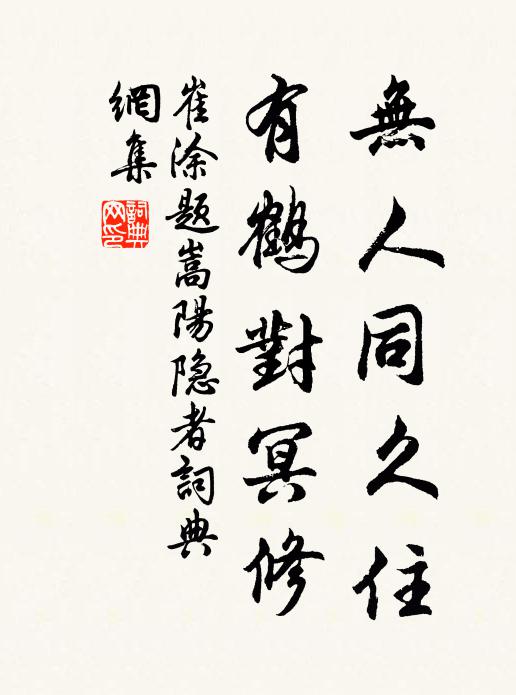 無人同久住
有鶴對冥修
崔涂题嵩陽隐者詞典
網集
詞典網印